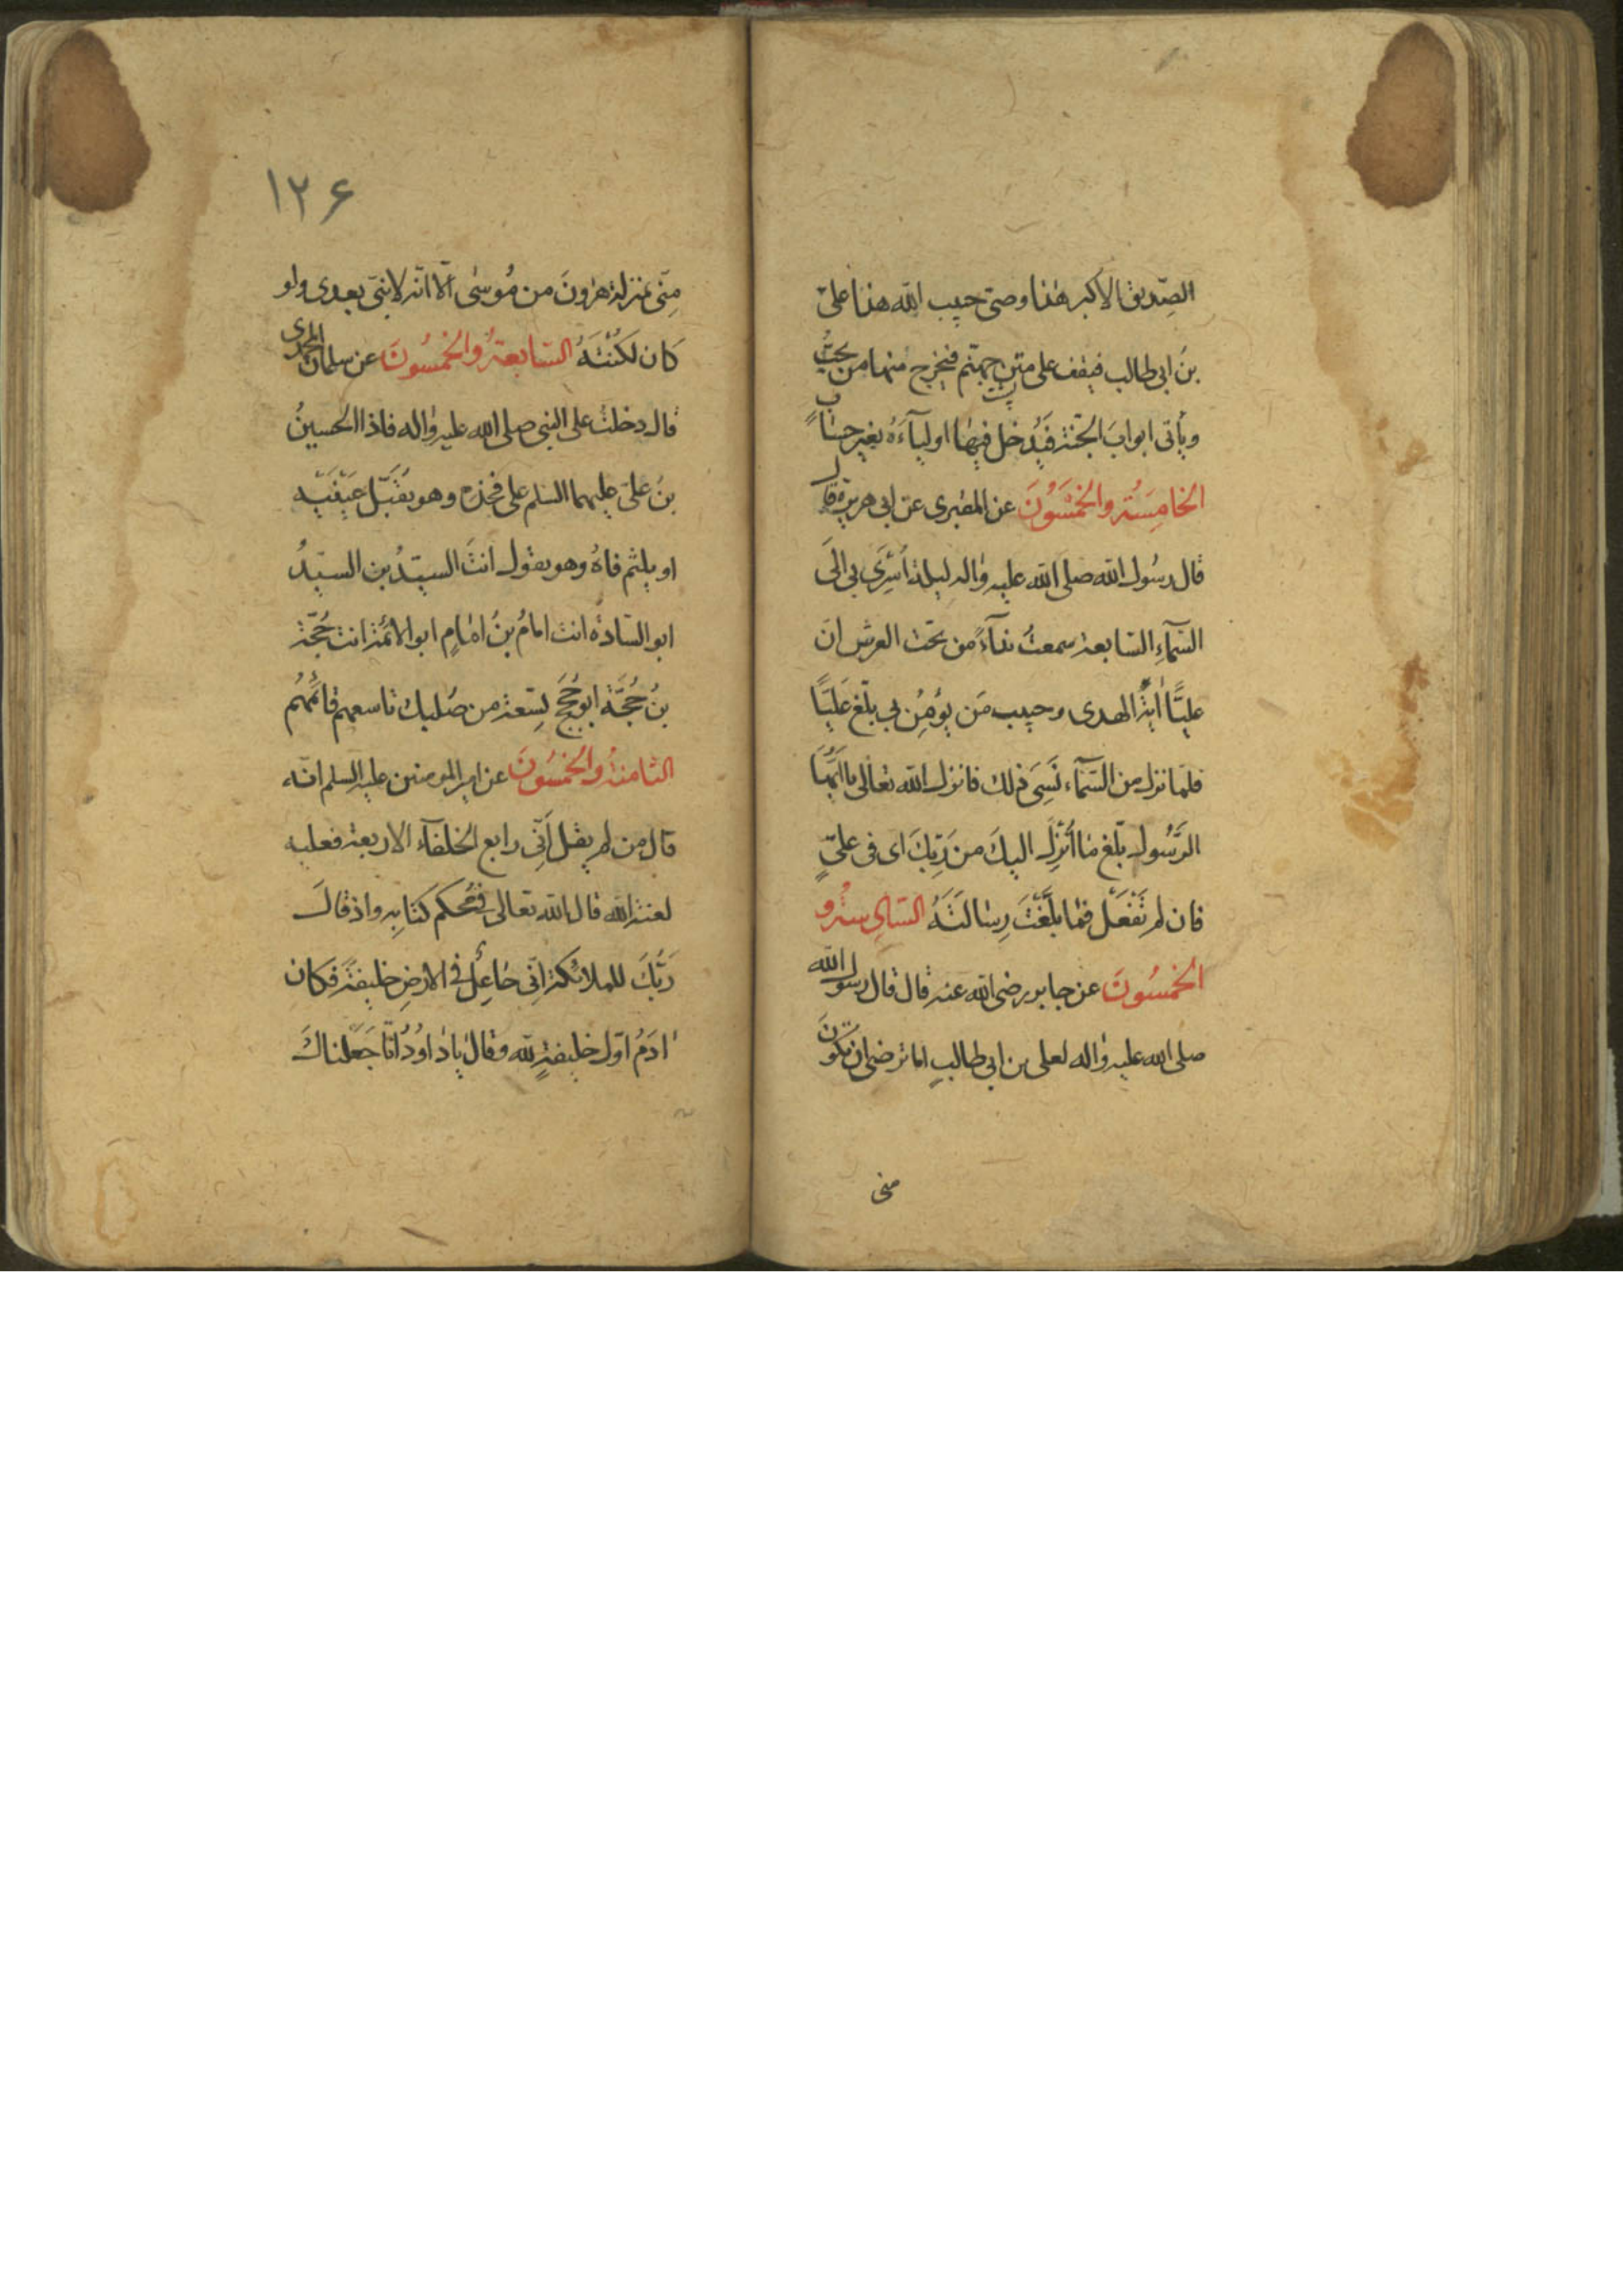 الصِّديق الاكبر هٰذا وصىّ حبيب الله هذا علىّ
بنُ ابى طالب فيقف على متن جهنّم فيخرج منها من يحبُّ
ويأتى ابوابَ الجنّة فيُدخل فيها اولياۤءَهُ بغير حسابٍ
الخامِسَةُ والخَمْسُونَ عن المقبرى عن ابى هريرة قال
قال رسُول الله صلى الله عليه واٰله ليلة اُسْرِىَ بى الَى
السّمآءِ السّابعة سمعتُ نداۤءً من تحت العرش انّ
عليًّا اٰيةُ الهدى وحبيب مَن يؤمِنُ بى بلّغ عَليًّا
فلمّا نزل من السّمآء نَسِىَ ذلك فانزل الله تعالى يا ايّهَا
الرَّسُول بلّغ مٰا اُنْزِلَ اليكَ من رَبِّكَ اى فى علىٍّ
فان لم تَفْعَلْ فمٰا بَلَّغْتَ رِسٰالَتَهُ السّادِسةُ و
الخمسُونَ عن جابر رضى الله عنه قال قال رسول الله
صلى الله عليه واٰله لعلى بن ابى طالبٍ اما ترضىٰ ان تكونَ
منى
١٢۶
مِنّى بمنزلة هٰرونَ من مُوسىٰ الّا انّه لا نبىّ بعدى ولو
كَان لكُنْتَهُ السّابعةُ والخمسُونَ عن سلمان المحمّدى
قال دخلتُ على النبى صلى الله عليه واٰله فاذا الحسينُ
بنُ علىّ عليهما السّلم على فخذه وهو يُقبّل عَيْنَيْه
او يلثم فاهُ وهو يقول انتَ السيّدُ بن السيّدُ
ابو السّادةُ انت امامُ بنُ امٰامٍ ابو الائمّة انت حُجّة
بنُ حُجَّة ابو حُجَج تِسعة من صُلبك تاسعهم قائمُهُم
الثامنةُ والخمسُونَ عن امير المومنين عليه السلم انّه
قال من لم يقل اَنّى رابع الخلفآء الاربعة فعليه
لعنة الله قال الله تعالى فى مُحكم كتابه واذ قالَ
رَبُّكَ للملائكة اِنّى جٰاعِلٌ فى الارض خليفةً فكان
اٰدَمُ اوّل خليفةٍ لله وقال يٰا دٰاوُدُ انّا جَعَلناكَ